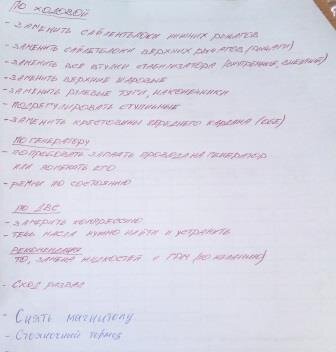 ПО ХОДОВОЙ
- ЗАМЕНИТЬ САЙЛЕНТБЛОКИ НИЖНИХ РЫЧАГОВ
- ЗАМЕНИТЬ САЙЛЕТБЛОКИ ВЕРХНИХ РЫЧАГОВ (РЫЧАГИ)
- ЗАМЕНИТЬ ВСЕ ВТУЛКИ СТАБИЛИЗАТОРА (ВНУТРЕННИЕ, ВНЕШНИЕ)
- ЗАМЕНИТЬ ВЕРХНИЕ ШАРОВЫЕ
- ЗАМЕНИТЬ РУЛЕВЫЕ ТЯГИ, НАКОНЕЧНИКИ
- ПОДРЕГУЛИРОВАТЬ СТУПИЧНЫЕ
- ЗАМЕНИТЬ КРЕСТОВИНЫ ПЕРЕДНЕГО КАРДАНА (ОБЕ)
ПО ГЕНЕРАТОРУ
- ПОПРОБОВАТЬ ЗАПАЯТЬ ПРОВОДА НА ГЕНЕРАТОР
ИЛИ ПОМЕНЯТЬ ЕГО
- РЕМНИ ПО СОСТОЯНИЮ
ПО ДВС
- ЗАМЕРИТЬ КОМПРЕССИЮ
- ТЕЧЬ МАСЛА НУЖНО НАЙТИ И УСТРАНИТЬ
РЕКОМЕНДАЦИЯ
ТО, ЗАМЕНА ЖИДКОСТЕЙ И ГРМ (ПО ЖЕЛАНИЮ)
- СХОД РАЗВАЛ
- Снять магнитолу
- Стояночный тормоз